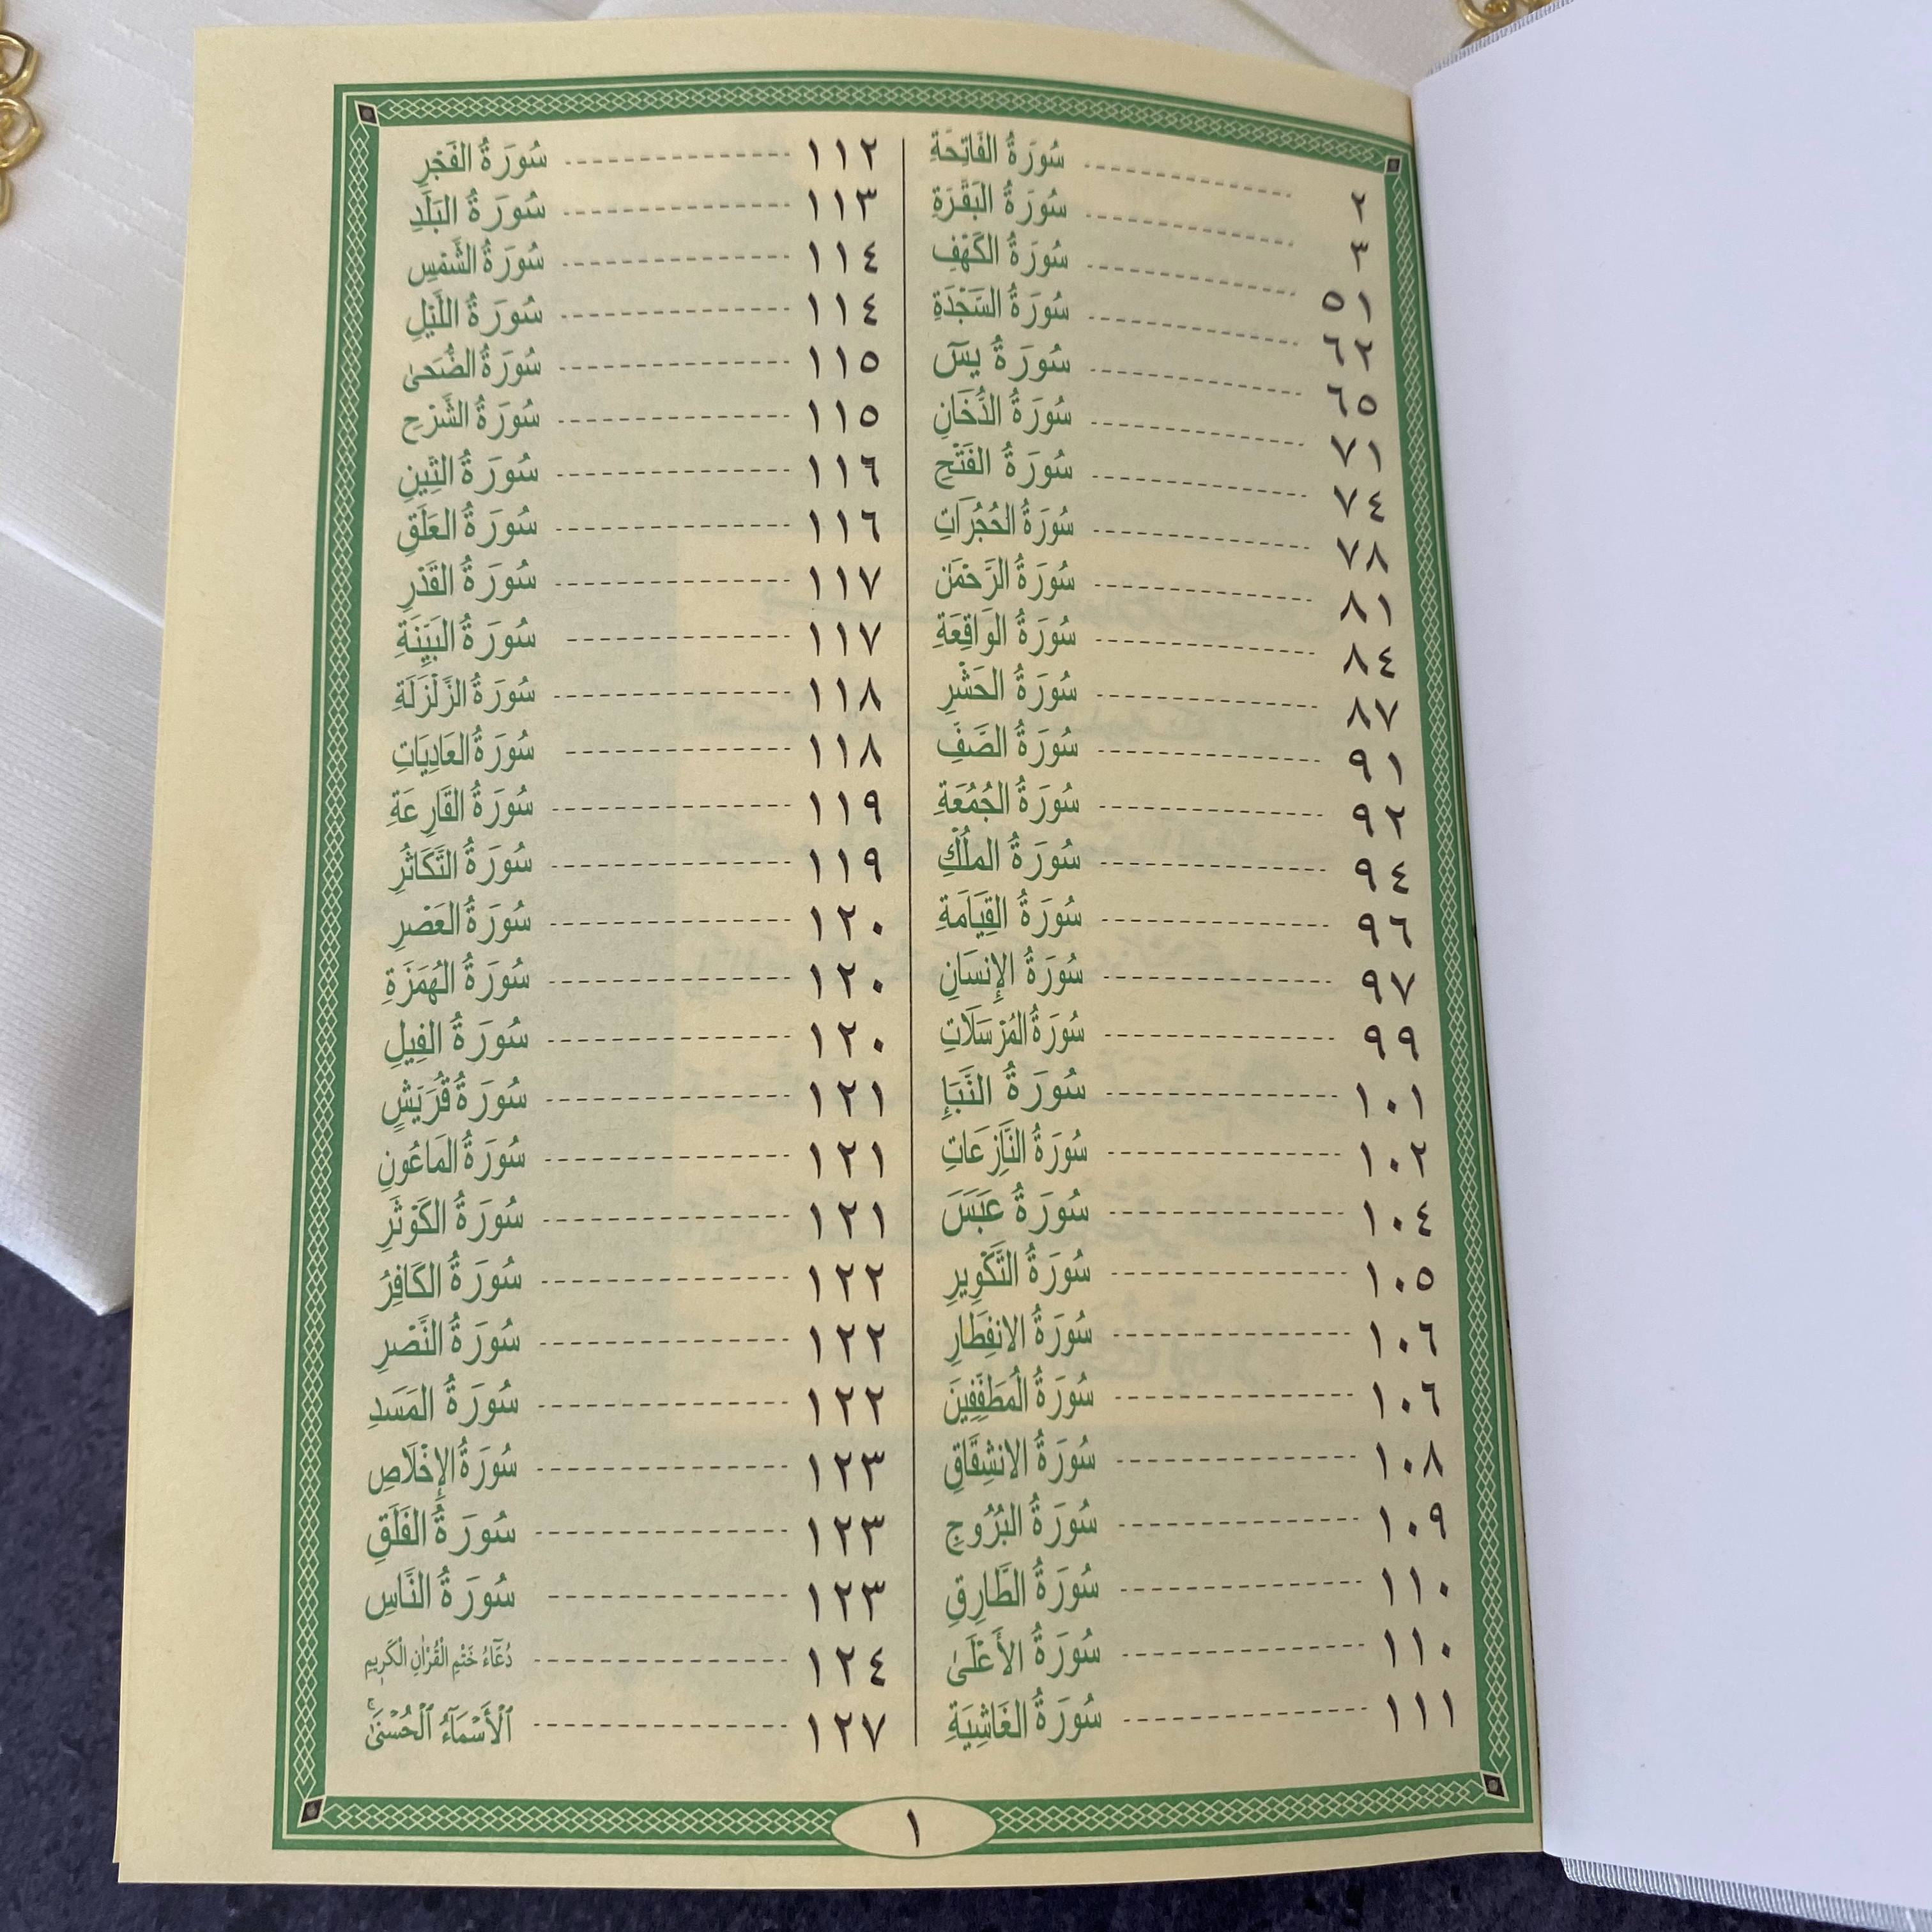 سُورَةُ الفَاتِحَةِ ٢
سُورَةُ البَقَرَةِ ٣
سُورَةُ الكَهْفِ ٥١
سُورَةُ السَّجْدَةِ ٦٢
سُورَةُ يسٓ ٦٥
سُورَةُ الدُّخَانِ ٧١
سُورَةُ الفَتْحِ ٧٤
سُورَةُ الحُجُرَاتِ ٧٨
سُورَةُ الرَّحْمَٰن ٨١
سُورَةُ الوَاقِعَةِ ٨٤
سُورَةُ الحَشْرِ ٨٧
سُورَةُ الصَّفِّ ٩١
سُورَةُ الجُمُعَةِ ٩٢
سُورَةُ المُلْكِ ٩٤
سُورَةُ القِيَامَةِ ٩٦
سُورَةُ الإِنسَانِ ٩٧
سُورَةُ المُرْسَلَاتِ ٩٩
سُورَةُ النَّبَإِ ١٠١
سُورَةُ النَّازِعَاتِ ١٠٢
سُورَةُ عَبَسَ ١٠٤
سُورَةُ التَّكْوِيرِ ١٠٥
سُورَةُ الانفِطَارِ ١٠٦
سُورَةُ المُطَفِّفِينَ ١٠٦
سُورَةُ الانشِقَاقِ ١٠٨
سُورَةُ البُرُوجِ ١٠٩
سُورَةُ الطَّارِقِ ١١٠
سُورَةُ الأَعْلَىٰ ١١٠
سُورَةُ الغَاشِيَةِ ١١١
سُورَةُ الفَجْرِ ١١٢
سُورَةُ البَلَدِ ١١٣
سُورَةُ الشَّمْسِ ١١٤
سُورَةُ اللَّيْلِ ١١٤
سُورَةُ الضُّحَىٰ ١١٥
سُورَةُ الشَّرْحِ ١١٥
سُورَةُ التِّينِ ١١٦
سُورَةُ العَلَقِ ١١٦
سُورَةُ القَدْرِ ١١٧
سُورَةُ البَيِّنَةِ ١١٧
سُورَةُ الزَّلْزَلَةِ ١١٨
سُورَةُ العَادِيَاتِ ١١٨
سُورَةُ القَارِعَةِ ١١٩
سُورَةُ التَّكَاثُرِ ١١٩
سُورَةُ العَصْرِ ١٢٠
سُورَةُ الهُمَزَةِ ١٢٠
سُورَةُ الفِيلِ ١٢٠
سُورَةُ قُرَيْشٍ ١٢١
سُورَةُ المَاعُونِ ١٢١
سُورَةُ الكَوْثَرِ ١٢١
سُورَةُ الكَافِرُ ١٢٢
سُورَةُ النَّصْرِ ١٢٢
سُورَةُ المَسَدِ ١٢٢
سُورَةُ الإِخْلَاصِ ١٢٣
سُورَةُ الفَلَقِ ١٢٣
سُورَةُ النَّاسِ ١٢٣
دُعَاءُ خَتْمِ الْقُرْآنِ الْكَرِيمِ ١٢٤
ٱلْأَسْمَآءُ ٱلْحُسْنَىٰ ١٢٧
١